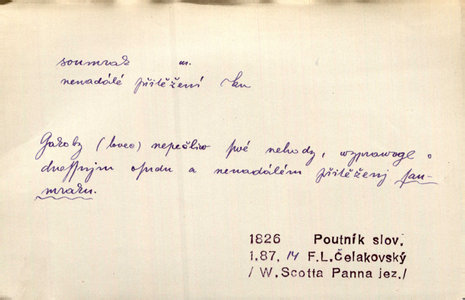 soumrak m.
nenadálé přitěžení -ku
Gakoby (lovec) nepěkliw své nehody, wyprawoge o
dneffnjm osudu a nenadálém přitěženj sau-
mraku.
1826 Poutník slov.
1.87, 14 F.L.Čelakovský
/ W.Scotta Panna jez./